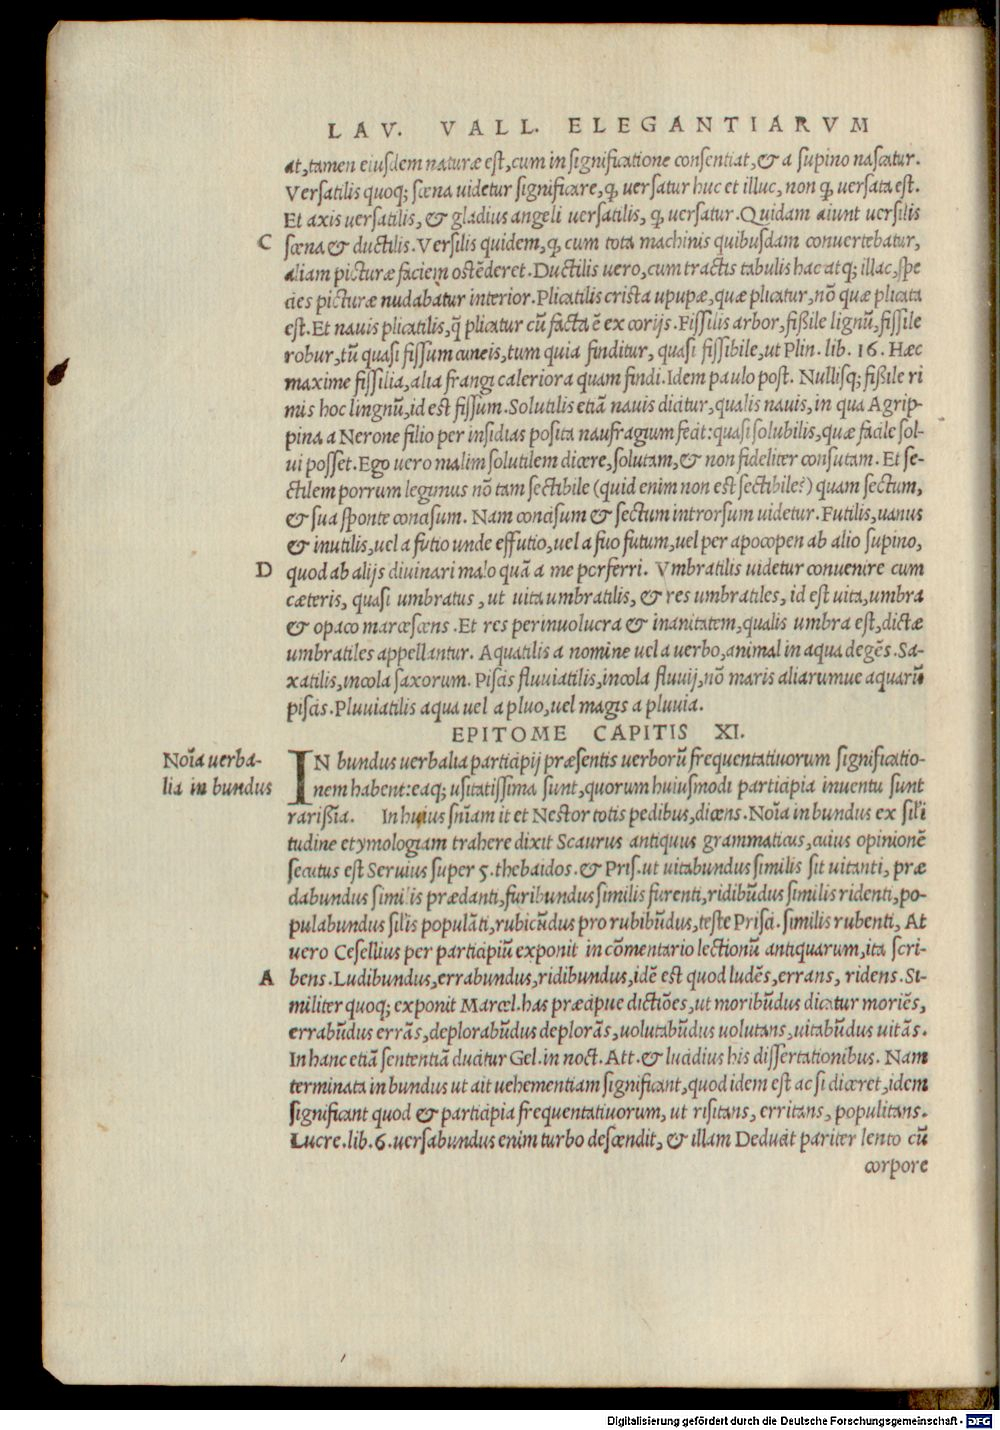 LAV. VALL. ELEGANTIARVM
at, tamen eiusdem naturæ est, cum in significatione consentiat, & a supino nascatur.
Versatilis quoq; scæna uidetur significare, ꝙ uersatur huc et illuc, non ꝙ uersata est.
Et axis uersatilis, & gladius angeli uersatilis, ꝙ uersatur. Quidam aiunt uersilis
C scæna & ductilis. Versilis quidem, ꝙ cum tota machinis quibusdam conuertebatur,
aliam picturæ faciem ostēderet. Ductilis uero, cum tractis tabulis hac atq; illac, spe
cies picturæ nudabatur interior. Plicatilis crista upupæ, quæ plicatur, nō quæ plicata
est. Et nauis plicatilis, q̄ plicatur cū facta ē ex corijs. Fissilis arbor, fißile lignū, fissile
robur, tū quasi fissum cuneis, tum quia finditur, quasi fissibile, ut Plin. lib. 16. Hæc
maxime fissilia, alia frangi caleriora quam findi. Idem paulo post. Nullisq; fißile ri
mis hoc lingnū, id est fissum. Solutilis etiā nauis dicitur, qualis nauis, in qua Agrip-
pina a Nerone filio per insidias posita naufragium fecit: quasi solubilis, quæ facile sol-
ui posset. Ego uero malim solutilem dicere, solutam, & non fideliter consutam. Et se-
ctilem porrum legimus nō tam sectibile (quid enim non est sectibile?) quam sectum,
& sua sponte concisum. Nam concisum & sectum introrsum uidetur. Futilis, uanus
& inutilis, uel a futio unde effutio, uel a fuo futum, uel per apocopen ab alio supino,
D quod ab alijs diuinari malo quā a me perferri. Vmbratilis uidetur conuenire cum
cæteris, quasi umbratus, ut uita umbratilis, & res umbratiles, id est uita, umbra
& opaco marcescens. Et res per inuolucra & inanitatem, qualis umbra est, dictæ
umbratiles appellantur. Aquatilis a nomine uel a uerbo, animal in aqua degēs. Sa-
xatilis, incola saxorum. Piscis fluuiatilis, incola fluuij, nō maris aliarumue aquarū
piscis. Pluuiatilis aqua uel a pluo, uel magis a pluuia.
EPITOME CAPITIS XI.
Noīa uerba-
lia in bundus
IN bundus uerbalia participij præsentis uerborū frequentatiuorum significatio-
nem habent: eaq; usitatissima sunt, quorum huiusmodi participia inuentu sunt
rarißia. In huius sn̄iam it et Nestor totis pedibus, dicens. Noīa in bundus ex sil'i
tudine etymologiam trahere dixit Scaurus antiquus grammaticus, cuius opinionē
secutus est Seruius super 5. thebaidos. & Pris. ut uitabundus similis sit uitanti, præ
dabundus similis prædanti, furibundus similis furenti, ridibūdus similis ridenti, po-
pulabundus sil'is populāti, rubicūdus pro rubibūdus, teste Prisci. similis rubenti, At
uero Cesellius per participiū exponit in cōmentario lectionū antiquarum, ita scri-
A bens. Ludibundus, errabundus, ridibundus, idē est quod ludēs, errans, ridens. Si-
militer quoq; exponit Marcel. has præcipue dictiōes, ut moribūdus dicatur moriēs,
errabūdus errās, deplorabūdus deplorās, uolutabūdus uolutans, uitabūdus uitās.
In hanc etiā sententiā ducitur Gel. in noct. Att. & lucidius his dissertationibus. Nam
terminata in bundus ut ait uehementiam significant, quod idem est ac si diceret, idem
significant quod & participia frequentatiuorum, ut risitans, erritans, populitans.
Lucre. lib. 6. uersabundus enim turbo descendit, & illam Deducit pariter lento cū
corpore
Digitalisierung gefördert durch die Deutsche Forschungsgemeinschaft - DFG